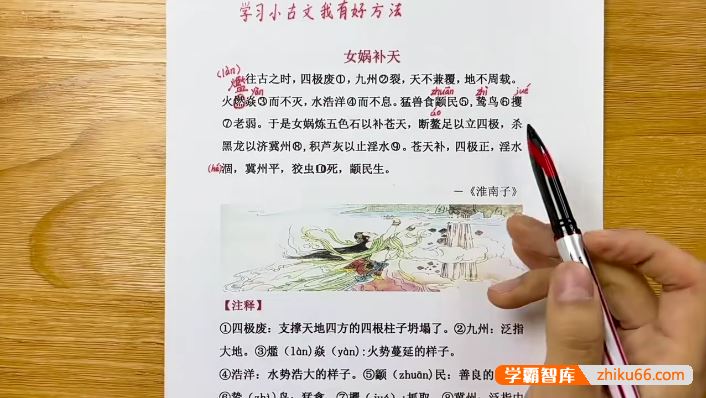 学习小古文我有好方法
女娲补天
(làn)
㷮
往古之时，四极废①，九州②裂，天不兼覆，地不周载。
yān zhuān zhì jué
火燃焱③而不灭，水浩洋④而不息。猛兽食颛民⑤，鸷鸟⑥攫
áo
⑦老弱。于是女娲炼五色石以补苍天，断鳌足以立四极，杀
黑龙以济冀州⑧，积芦灰以止淫水⑨。苍天补，四极正，淫水
(hé)
涸，冀州平，狡虫⑩死，颛民生。
—《淮南子》
【注释】
①四极废：支撑天地四方的四根柱子坍塌了。②九州：泛指
大地。③爁(làn)焱(yàn):火势蔓延的样子。
④浩洋：水势浩大的样子。⑤颛(zhuān)民：善良的
学霸智库 zhiku66.com